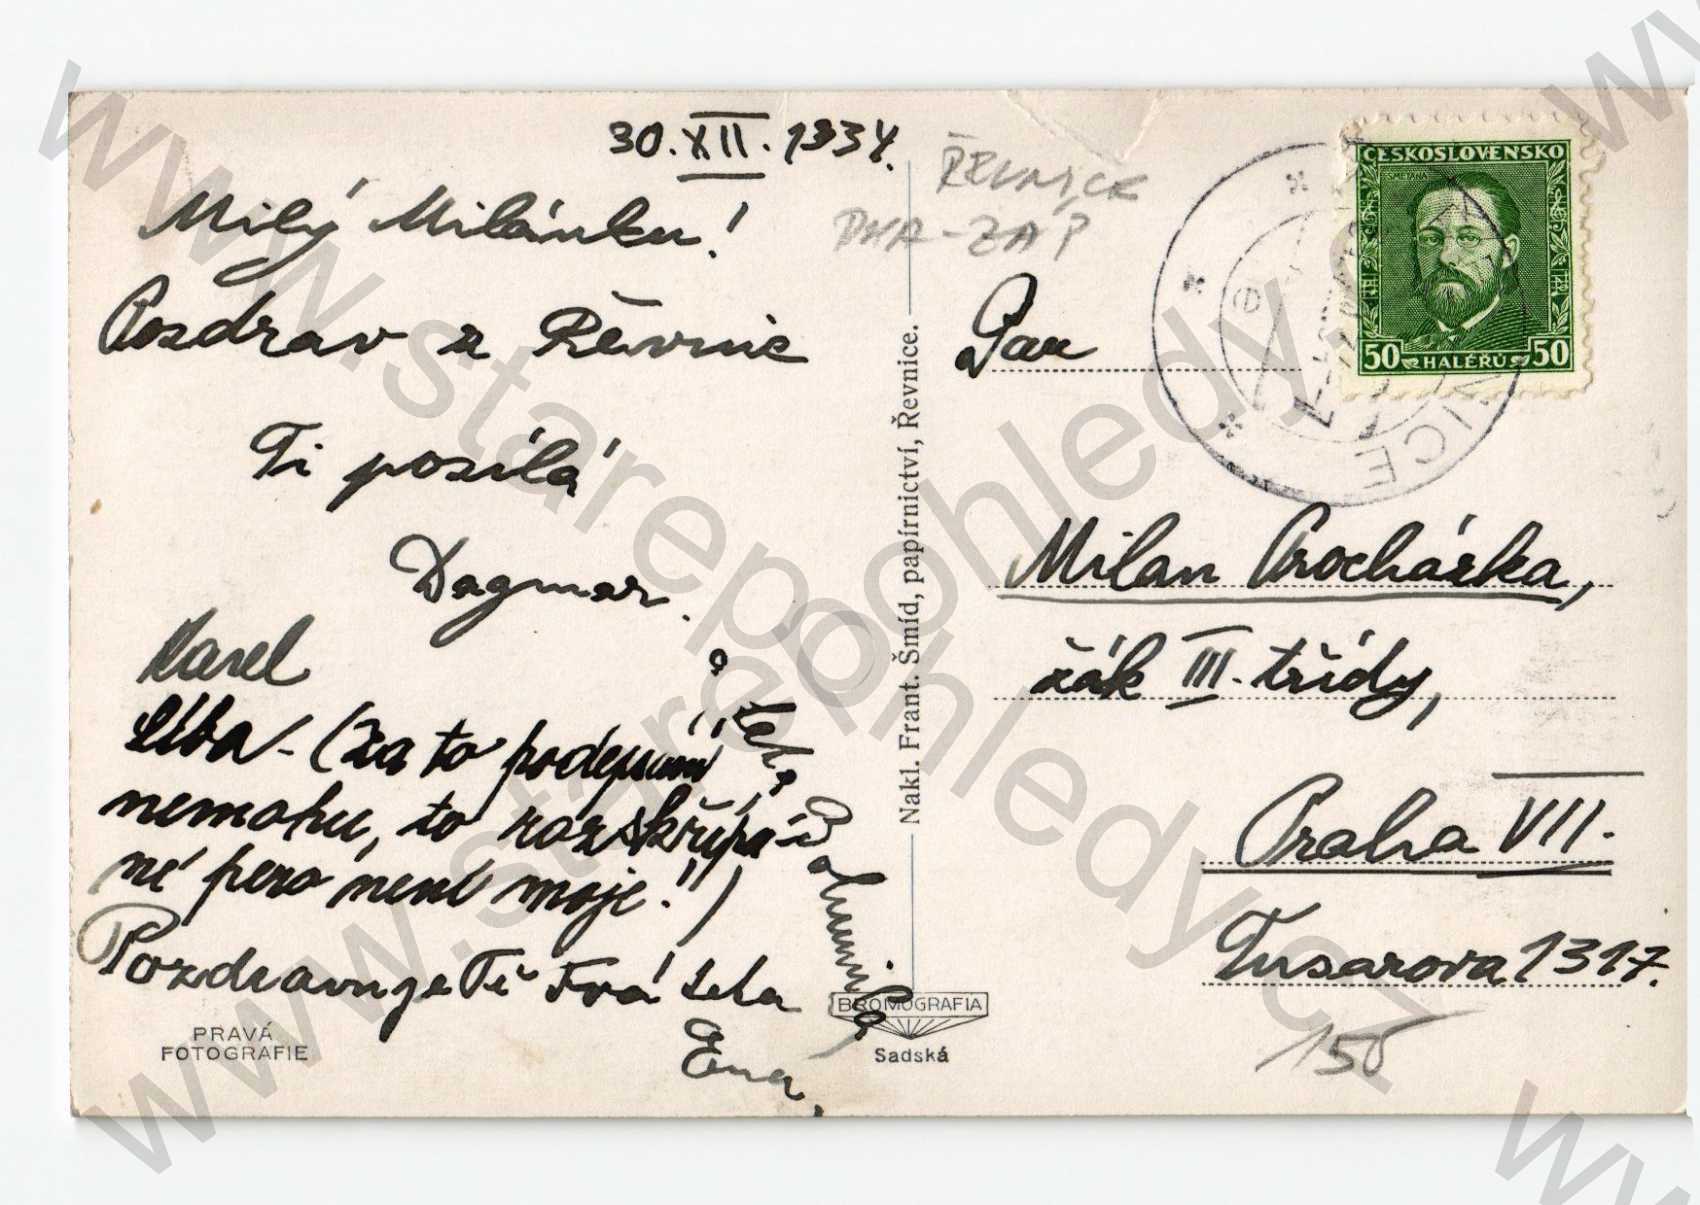 30. XII. 1934.
Milý Milánku!
Pozdrav z Řevnic
Ti posílá
Dagmar.
Karel
Líba - (za to podepsání
nemohu, to rozskřípa-
né pero není moje!)
Pozdravuje Tě
teta
Ena.
Bohumila
PRAVÁ
FOTOGRAFIE
Nakl. Frant. Šmíd, papírnictví, Řevnice.
BROMOGRAFIA
Sadská
ŘEVNICE
ČESKOSLOVENSKO
SMETANA
50 HALÉŘŮ 50
NICE
Pan
Milan Procházka,
žák III. třídy,
Praha VII.
Tusarova 1317.
150
www.starepohledy.cz
www.starepohledy.cz